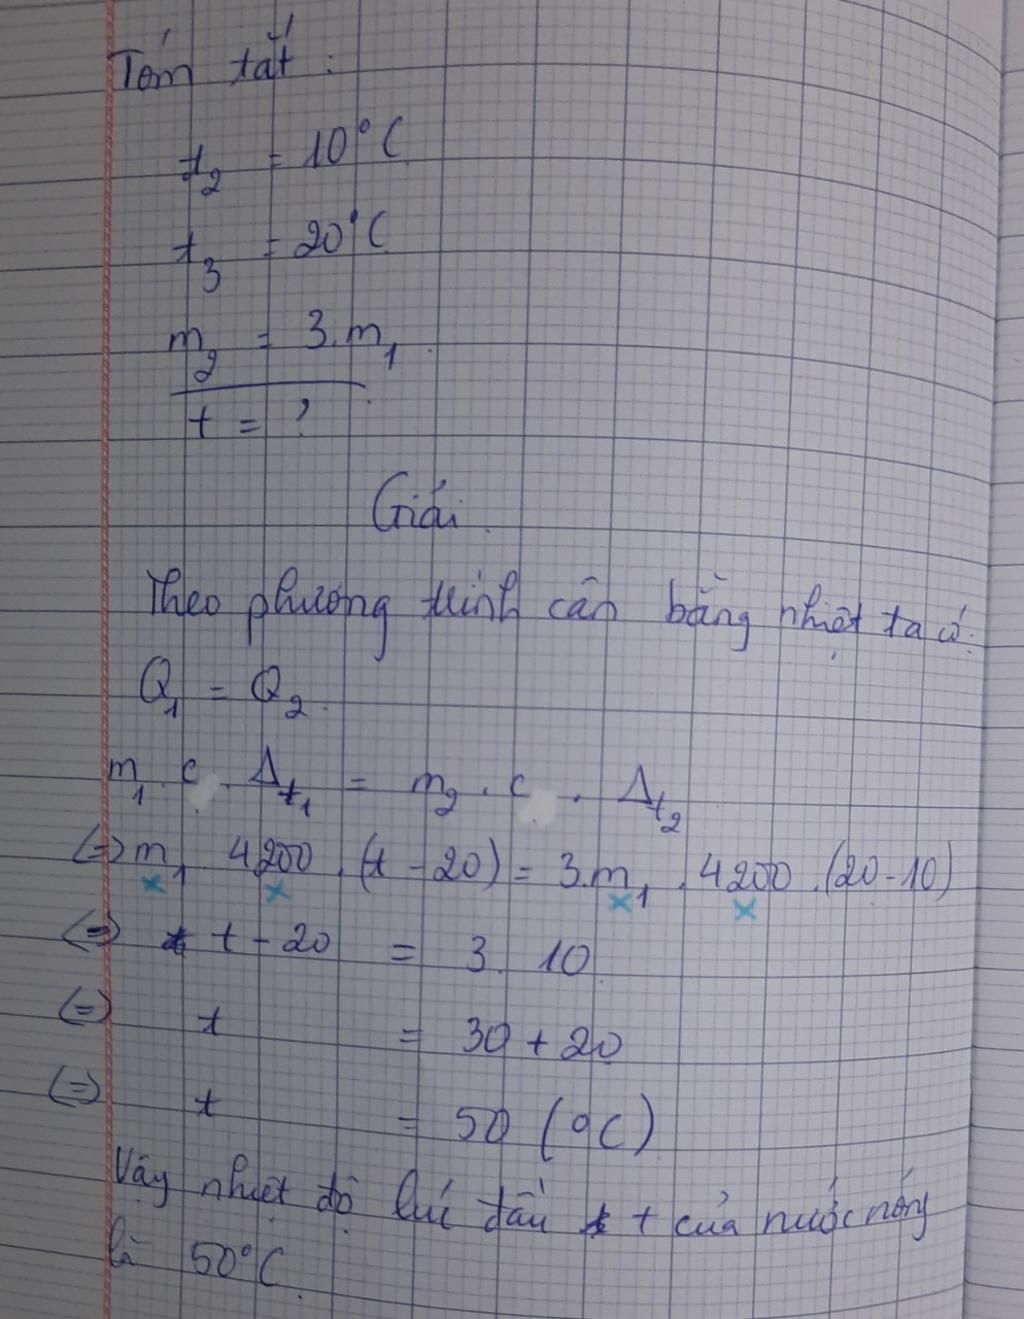 Tóm tắt :
t₂ = 10°C
t₃ = 20°C
m₂ = 3.m₁
t = ?
Giải.
Theo phương trình cân bằng nhiệt ta có:
Q₁ = Q₂.
m₁ . c . Δt₁ = m₂ . c . Δt₂
(=) m₁ 4200 . (t - 20) = 3.m₁ . 4200 . (20-10)
(=) t - 20 = 3. 10
(=) t = 30 + 20
(=) t = 50 (°C)
Vậy nhiệt độ lúc đầu t của nước nóng
là 50°C.